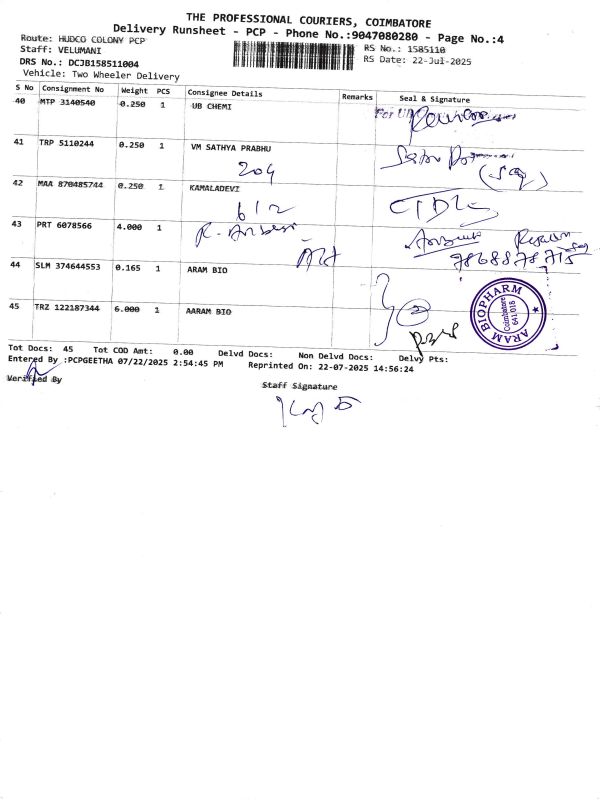 THE PROFESSIONAL COURIERS, COIMBATORE
Delivery Runsheet - PCP - Phone No.:9047080280 - Page No.:4
Route: HUDCO COLONY PCP
RS No.: 1585110
Staff: VELUMANI
RS Date: 22-Jul-2025
DRS No.: DCJB158511004
Vehicle: Two Wheeler Delivery
S No Consignment No Weight PCS Consignee Details Remarks Seal & Signature
40 MTP 3140540 0.250 1 UB CHEMI
For
41 TRP 5110244 0.250 1 VM SATHYA PRABHU
204
42 MAA 870485744 0.250 1 KAMALADEVI
612
43 PRT 6078566 4.000 1
44 SLM 374644553 0.165 1 ARAM BIO
45 TRZ 122187344 6.000 1 AARAM BIO
2
ARAM BIOPHARM
Coimbatore
641 018
Tot Docs: 45 Tot COD Amt: 0.00 Delvd Docs: Non Delvd Docs: Delvy Pts:
Entered By :PCPGEETHA 07/22/2025 2:54:45 PM Reprinted On: 22-07-2025 14:56:24
Verified By
Staff Signature